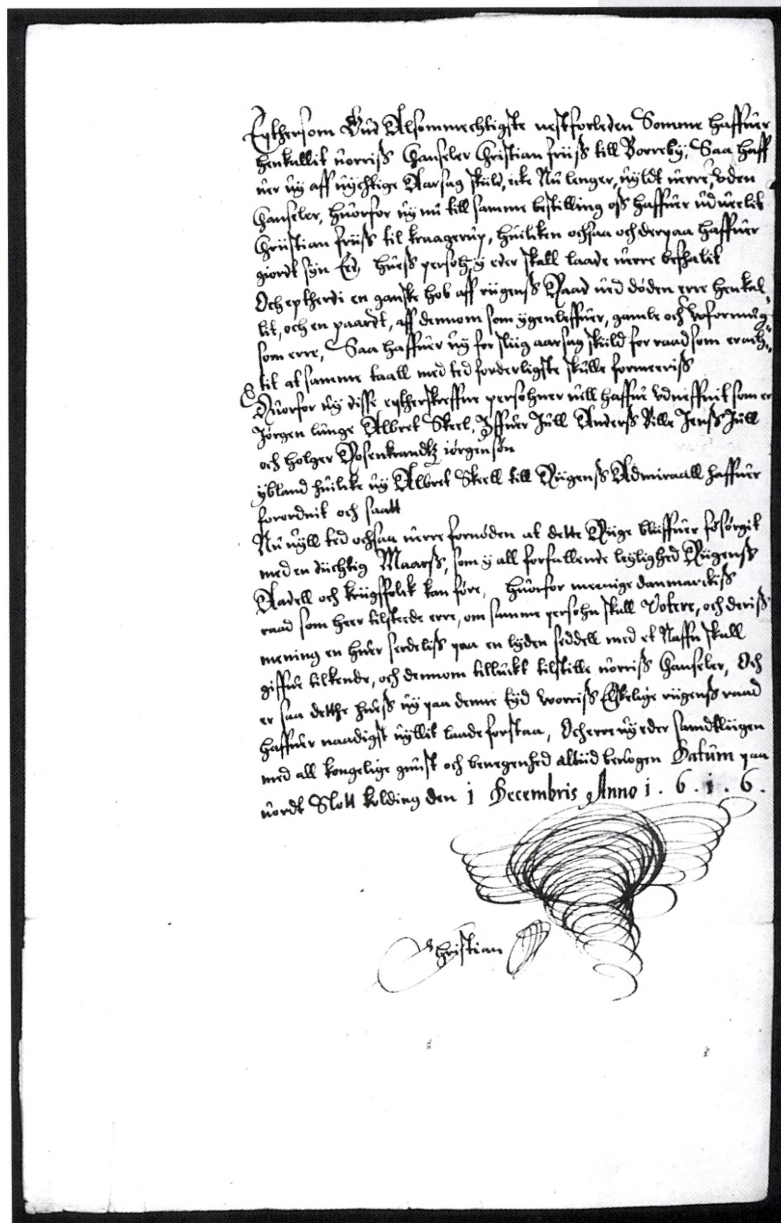 Epthersom Gud Alsommechtigste nestforleden Somme haffuer
henkallit vorriss Canseler Christian friiss till Borreby, Saa haff
uer vy aff vychtige Aarsag skild, icke Nu lenger, vyldt verre, vden
Canseler, huorfor vy nu till samme bestilling oss haffuer vduerlit
Christian friiss til kraagerup, huilcken ochsaa och derpaa haffuer
giordt syn Eed, huess persohn y eder skall laade verre befhalit
Och eptherdi en ganske hob aff rigenss Raad ved døden erre henkal-
lit, och en paardt, aff dennom som ygenleffuer, gamle och vformug-
som erre, Saa haffuer vy for sliig aarsag skiild for raadsom eracht-
tit at samme taall med ted forderligste skulle formeriss
Huorfor vy disse eptherskreffne persohner vill haffue vdneffnit som er
Jørgen lunge Albret Skeel, Iffuer Jull Anderss Bille Jenss Jull
och holger Rosenkrandtz iørgensøn
ybland huilcke vy Albret Skeell till Riigenss Admiraall haffuer
forordnit och saatt
Nu vyll ted ochsaa verre fornøden at dette Riige bliiffuer forsørgit
med en duchtig Maarsk, som y all forfallende leylighed Riigenss
Aadell och kriigsfolck kan føre, huorfor meenige danmarckiss
raad som heer tilstede erre, om samme persohn skall Votere, och deriss
mening en huer serdeliss paa en lyden seddell med et Naffn skall
giffue tilkende, och dennom tilluckt tilstille vorriss Canseler, Och
er saa detthe huess vy paa denne tyd vorriss Elskelige riigenss raad
haffuer naadigst vyllit laade forstaa, Och erre vy eder samdtliigen
med all kongelige gunst och benegenhed altiid beuogen Datum paa
vordt Slott kolding den i Decembris Anno i . 6 . i . 6 .
Christian